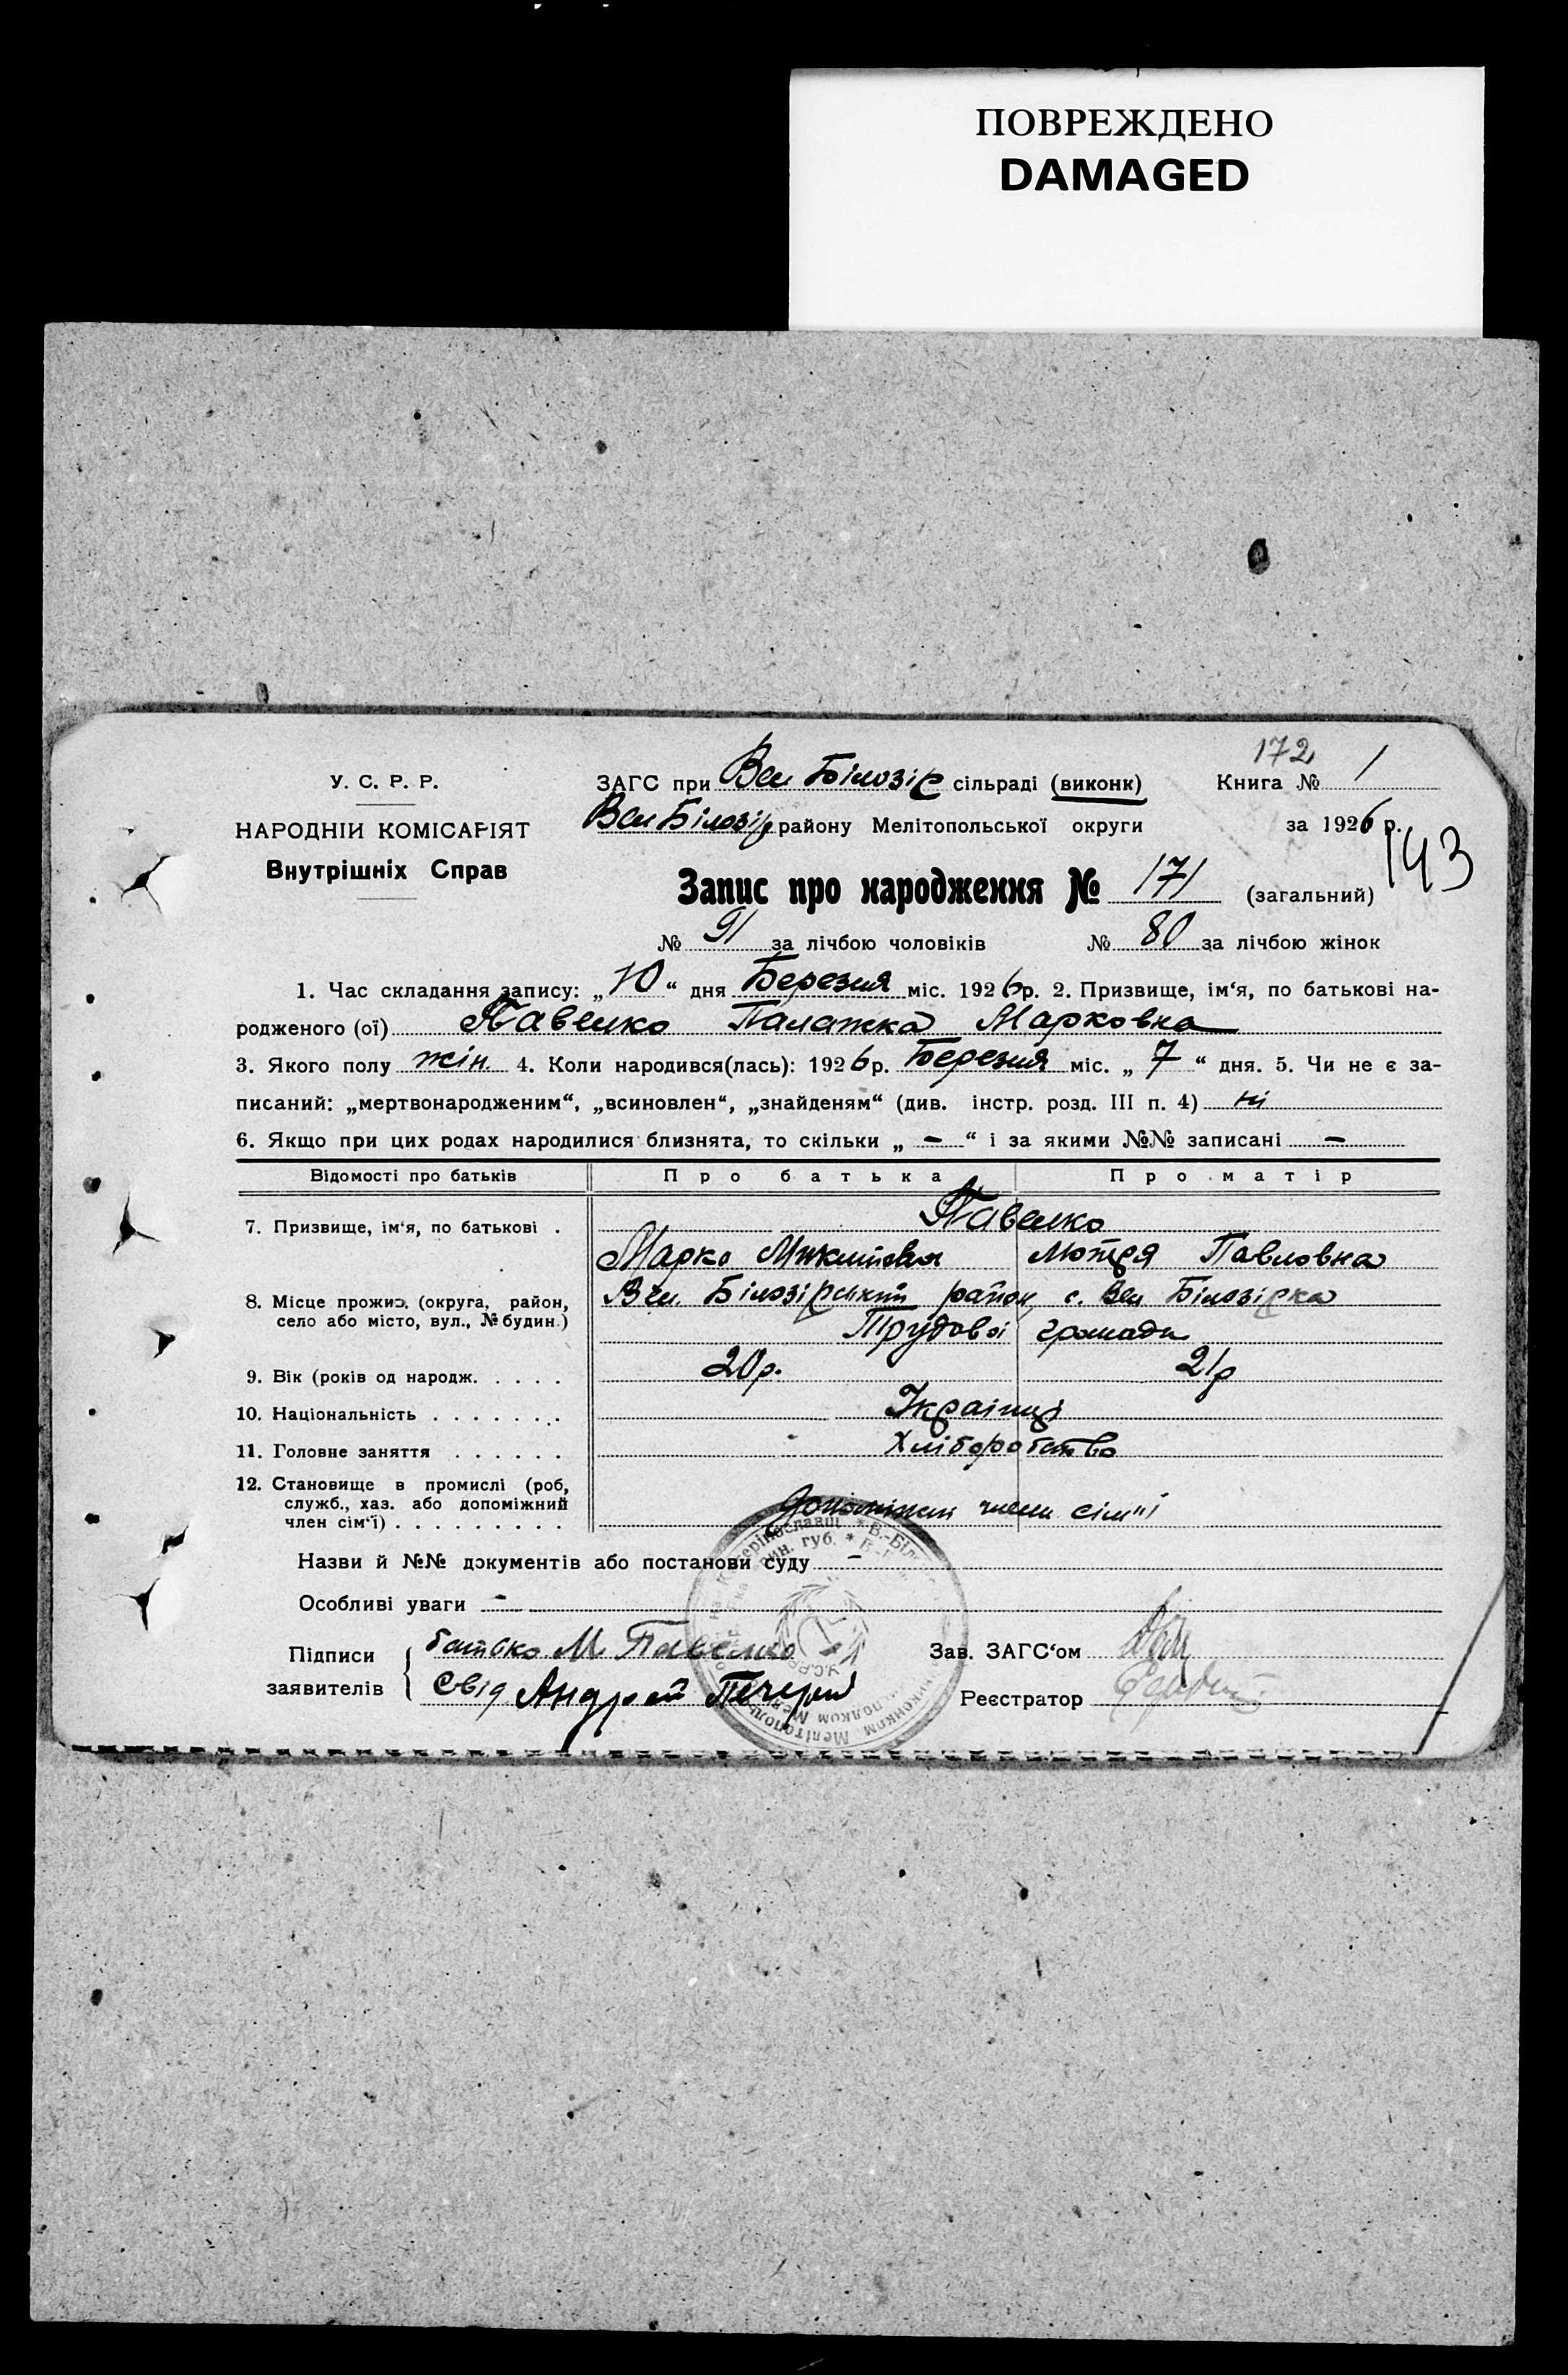 ПОВРЕЖДЕНО
DAMAGED
172
У. С. Р. Р.
ЗАГС при Вел Білозір сільраді (виконк)
Книга № 1
НАРОДНІЙ КОМІСАРІЯТ
Вел Білозір району Мелітопольської округи
за 1926 р.
143
Внутрішніх Справ
Запис про народження № 171 (загальний)
№ 91 за лічбою чоловіків № 80 за лічбою жінок
1. Час складання запису: „10“ дня Березня міс. 1926 р. 2. Призвище, ім‘я, по батькові на-
родженого (ої) Павелко Палажка Марковна
3. Якого полу жін. 4. Коли народився(лась): 1926 р. Березня міс. „ 7 “ дня. 5. Чи не є за-
писаний: „мертвонародженим“, „всиновлен“, „знайденям“ (див. інстр. розд. III п. 4) ні
6. Якщо при цих родах народилися близнята, то скільки „ – “ і за якими №№ записані –
Відомості про батьків Про батька Про матір
7. Призвище, ім‘я, по батькові . Павелко
Марко Микитович Мотря Павловна
8. Місце прожив. (округа, район, село або місто, вул., № будин.) Вел. Білозірський район, с. Вел Білозірка
Трудової громади
9. Вік (років од народж. . . . . 20р. 21р
10. Національність . . . . . . . Українці
11. Головне заняття . . . . . . Хліборобство
12. Становище в промислі (роб, служб., хаз. або допоміжний член сім‘ї) . . . . . . . . . допоміжні члени сім"ї
Назви й №№ документів або постанови суду –
Особливі уваги –
Підписи заявителів
батько М Павелко
Свід Андрей
Зав. ЗАГС‘ом
Реєстратор